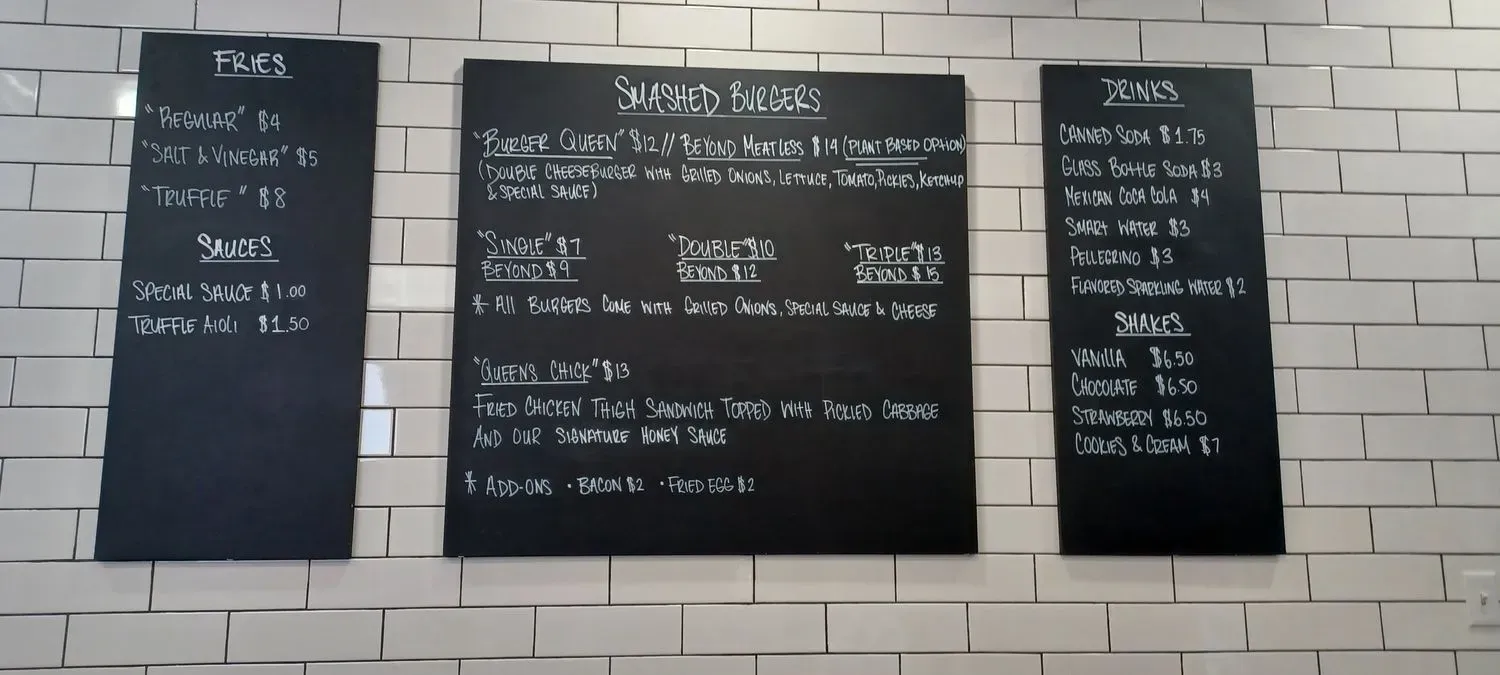 FRIES
"REGULAR" $4
"SALT & VINEGAR" $5
"TRUFFLE" $8
SAUCES
SPECIAL SAUCE $1.00
TRUFFLE AIOLI $1.50
SMASHED BURGERS
"BURGER QUEEN" $12 // BEYOND MEATLESS $14 (PLANT BASED OPTION)
(DOUBLE CHEESEBURGER WITH GRILLED ONIONS, LETTUCE, TOMATO, PICKLES, KETCHUP
& SPECIAL SAUCE)
"SINGLE" $7 "DOUBLE" $10 "TRIPLE" $13
BEYOND $9 BEYOND $12 BEYOND $15
* All BURGERS COME WITH GRILLED ONIONS, SPECIAL SAUCE & CHEESE
"QUEENS CHICK" $13
FRIED CHICKEN THIGH SANDWICH TOPPED WITH PICKLED CABBAGE
AND OUR SIGNATURE HONEY SAUCE
* ADD-ONS • BACON $2 • FRIED EGG $2
DRINKS
CANNED SODA $1.75
GLASS BOTTLE SODA $3
MEXICAN COCA COLA $4
SMART WATER $3
PELLEGRINO $3
FLAVORED SPARKLING WATER $2
SHAKES
VANILLA $6.50
CHOCOLATE $6.50
STRAWBERRY $6.50
COOKIES & CREAM $7